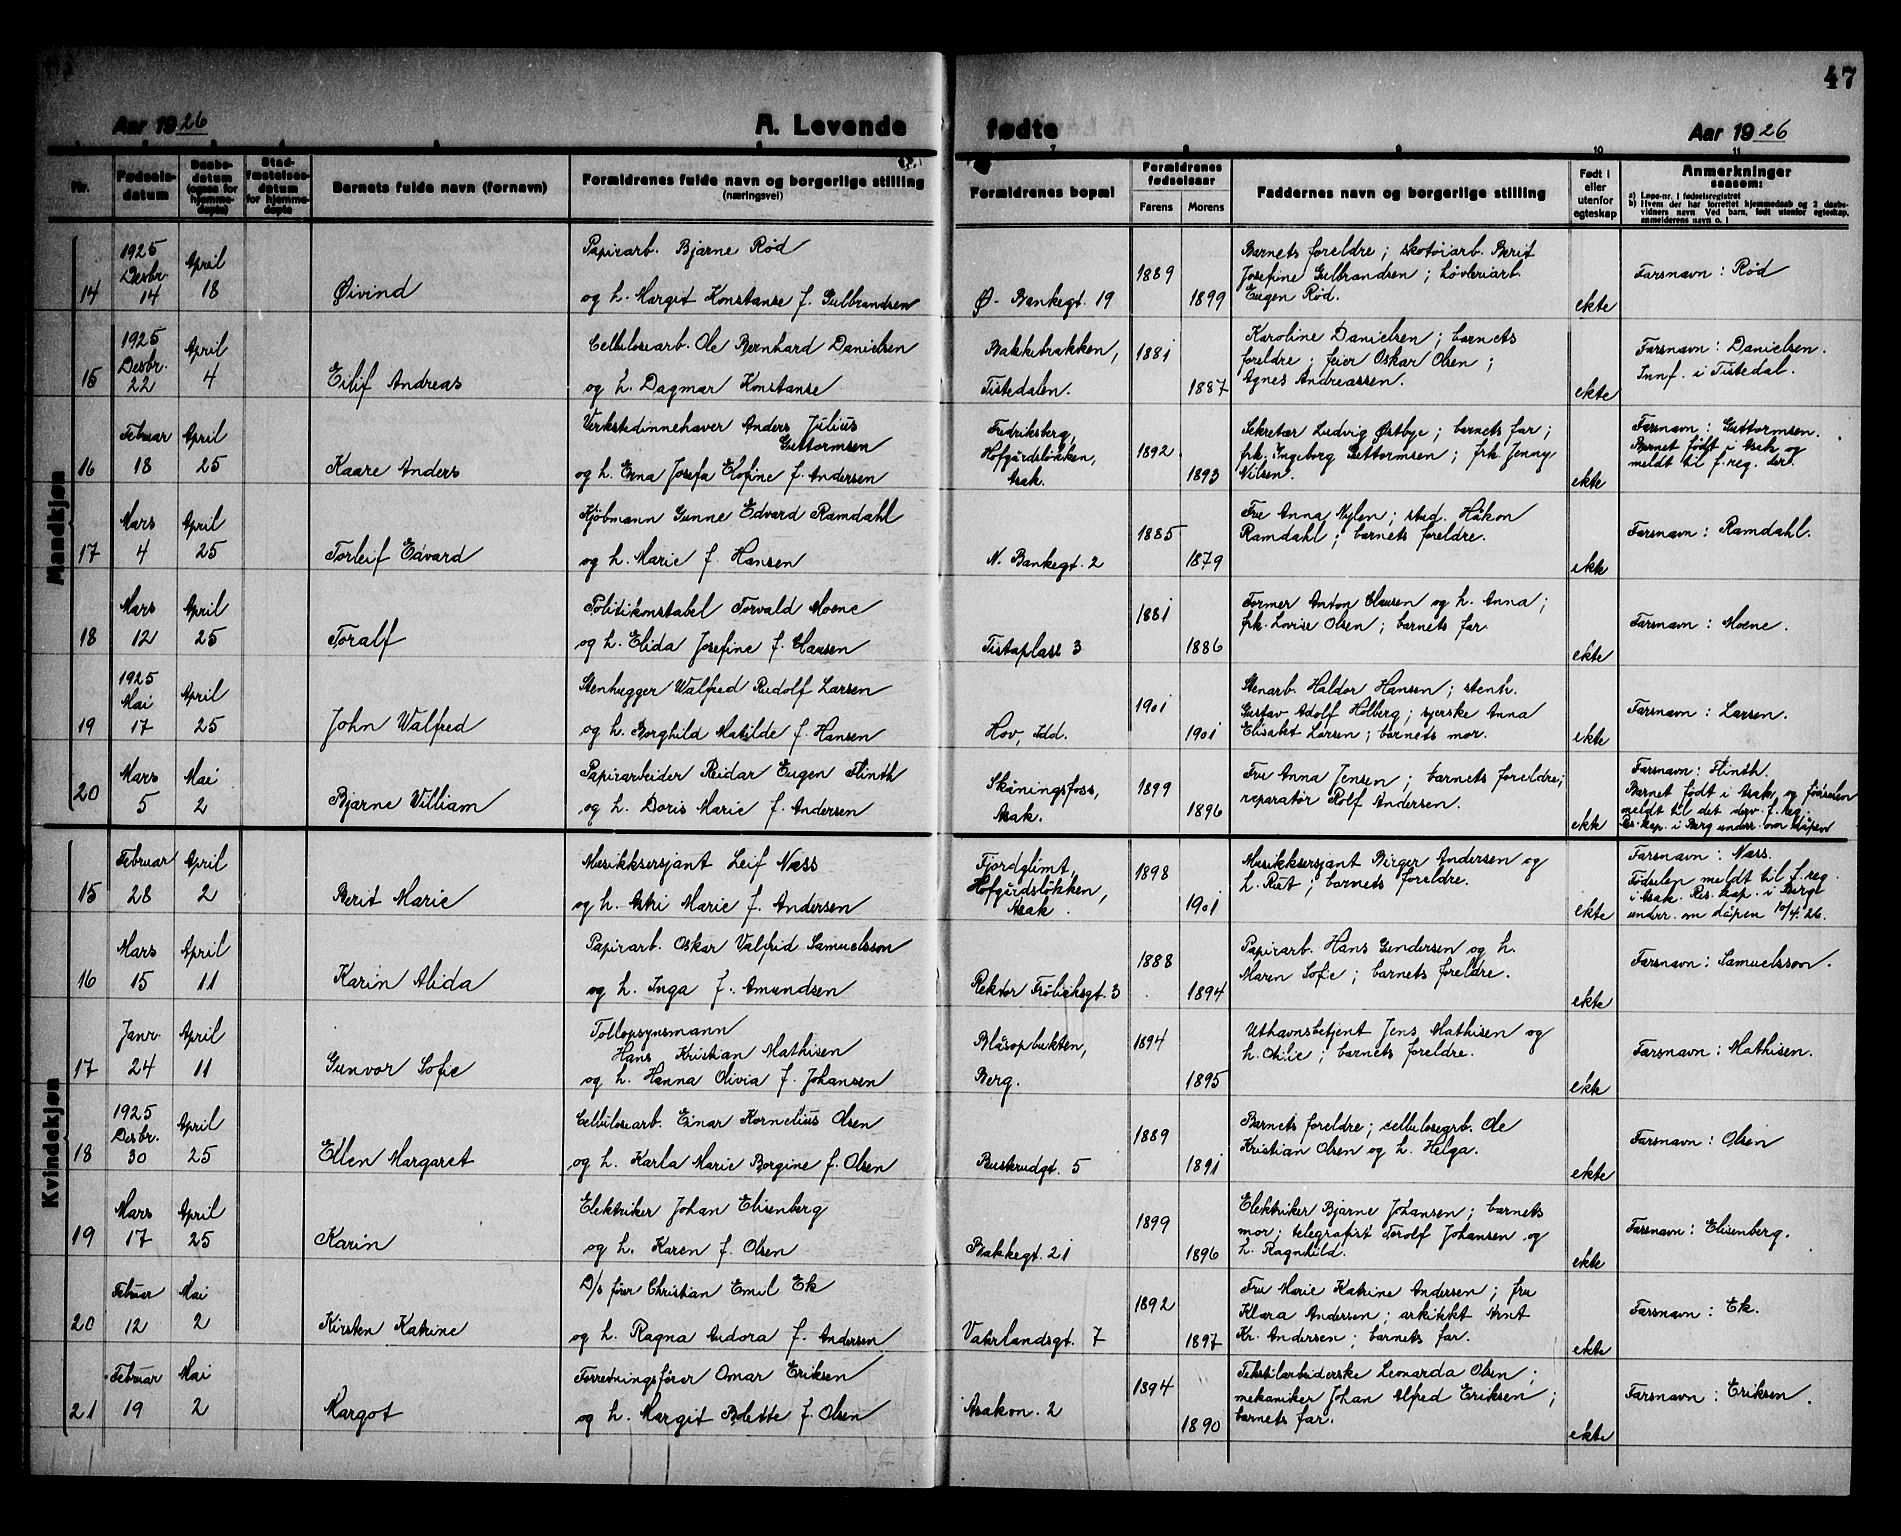 47
Aar 1926
A. Levende
fødte
Aar 1926
Nr.
Fødsels-
datum
Daabs-
datum
(ogsaa for
hjemme-
døpte)
Stad-
fæstelses-
datum
for hjemme-
døpte
Barnets fulde navn (fornavn)
Forældrenes fulde navn og borgerlige stilling
(næringsvei)
7 8 9 10 11
Forældrenes bopæl
Forældrenes
fødselsaar
Farens Morens
Faddernes navn og borgerlige stilling
Født i
eller
utenfor
egteskap
Anmerkninger
saasom:
a) Løpe-nr. i fødselsregistret
b) Hvem der har forrettet hjemmedaab og 2 daabs-
vidners navn Ved barn, født utenfor egteskap,
anmelderens navn o. l
Mandkjøn
14
1925
Desbr.
14
April
18
Øivind
Papirarb. Bjarne Rød
og h. Margit Konstanse f. Gulbrandsen
Ø. Bankegt. 19
1889
1899
Barnets foreldre; skotøiarb. Berit
Josefine Gulbrandsen; høvleriarb.
Eugen Rød.
ekte
Farsnavn: Rød
15
1925
Desbr.
22
April
4
Eilif Andreas
Cellulosearb. Ole Bernhard Danielsen
og h. Dagmar Konstanse
Bakkebrakken,
Tistedalen.
1881
1887
Karoline Danielsen; barnets
foreldre; feier Oskar Olsen;
Agnes Andreassen.
ekte
Farsnavn: Danielsen.
Innf. i Tistedal.
16
Februar
18
April
25
Kaare Anders
Verkstedinnehaver Anders Julius
Guttormsen
og h. Erna Josefa Elofine f. Andersen
Fredriksberg,
Hofgårdsløkken,
Asak.
1892
1893
Sekretær Ludvig Østbye; barnets far;
frk. Ingeborg Guttormsen; frk. Jenny
Nilsen.
ekte
Farsnavn: Guttormsen.
Barnet født i Asak og
meldt til f. reg. der.
17
Mars
4
April
25
Torleif Edvard
Kjøbmann Gunne Edvard Ramdahl
og h. Marie f. Hansen
N. Bankegt. 2
1885
1879
Fru Anna Nylen; stud. Håkon
Ramdahl; barnets foreldre.
ekte
Farsnavn: Ramdahl.
18
Mars
12
April
25
Toralf
Politikonstabel Torvald Moene
og h. Elida Josefine f. Clausen
Tistaplass 3
1881
1886
Former Anton Clausen og h. Anna;
frk. Lovise Olsen; barnets far.
ekte
Farsnavn: Moene.
19
1925
Mai
17
April
25
John Walfred
Stenhugger Walfred Rudolf Larsen
og h. Borghild Matilde f. Hansen
Hov, Idd.
1901
1901
Stenarb. Haldor Hansen; stenh.
Gustav Adolf Holberg; syerske Anna
Elisabet Larsen; barnets mor.
ekte
Farsnavn: Larsen.
20
Mars
5
Mai
2
Bjarne Villiam
Papirarbeider Reidar Eugen Flinth
og h. Doris Marie f. Andersen
Skåningsfoss,
Asak.
1899
1896
Fru Anna Jensen; barnets foreldre;
reparatør Rolf Andersen.
ekte
Farsnavn: Flinth.
Barnet født i Asak, og fødselen
meldt til det derv. f. reg.
Res. kap. i Berg underr. om dåpen
Kvindekjøn
15
Februar
28
April
2
Berit Marie
Musikksersjant Leif Næss
og h. Astri Marie f. Andersen
Fjordglimt,
Hofgårdsløkken,
Asak.
1898
1901
Musikksersjant Birger Andersen og
h. Rut; barnets foreldre.
ekte
Farsnavn: Næss.
Fødselen meldt til f. reg.
i Asak. Res. kap. i Berg
underr. om dåpen 10/4.26.
16
Mars
15
April
11
Karin Alida
Papirarb. Oskar Valfrid Samuelsson
og h. Inga f. Amundsen
Rektor Frølichsgt. 3
1888
1894
Papirarb. Hans Gundersen og h.
Maren Sofie; barnets foreldre.
ekte
Farsnavn: Samuelsson.
17
Janr.
24
April
11
Gunvor Sofie
Tollopsynsmann
Hans Kristian Mathisen
og h. Hanna Olivia f. Johansen
Blåsopbukten,
Berg.
1894
1895
Uthavnsbetjent Jens Mathisen og
h. Otilie; barnets foreldre.
ekte
Farsnavn: Mathisen.
18
1925
Desbr.
30
April
25
Ellen Margaret
Cellulosearb. Einar Kornelius Olsen
og h. Karla Marie Borgine f. Olsen
Buskrudgt. 5
1889
1891
Barnets foreldre; cellulosearb. Ole
Kristian Olsen og h. Helga.
ekte
Farsnavn: Olsen
19
Mars
17
April
25
Karin
Elektriker Johan Elisenberg
og h. Karen f. Olsen
Bakkegt. 21
1899
1896
Elektriker Bjarne Johansen; barnets
mor; telegrafist Torolf Johansen og
h. Ragnhild.
ekte
Farsnavn: Elisenberg.
20
Februar
12
Mai
2
Kirsten Katrine
D/s fører Christian Emil Ek
og h. Ragna Audora f. Andersen
Vaterlandsgt. 7
1892
1897
Fru Marie Katrine Andersen; fru
Klara Andersen; arkitekt Arnt
Kr. Andersen; barnets far.
ekte
Farsnavn: Ek.
21
Februar
19
Mai
2
Margot
Forretningsfører Omar Eriksen
og h. Margit Bolette f. Olsen
Asakon. 2
1894
1890
Tekstilarbeiderske Leonarda Olsen;
mekaniker Johan Alfred Eriksen;
barnets far.
ekte
Farsnavn: Eriksen.